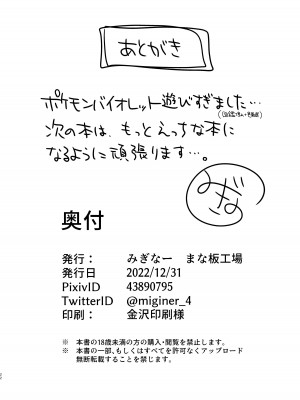 あとがき
ポケモンバイオレット遊びすぎました…
次の本は、もっとえっちな本に
なるように頑張ります…。
みぎなー
奥付
発行： みぎなー まな板工場
発行日 2022/12/31
PixivID 43890795
TwitterID @miginer_4
印刷： 金沢印刷様
※ 本書の18歳未満の方の購入・閲覧を禁止します。
※ 本書の一部、もしくはすべてを許可なくアップロード
無断転載することを禁じます。